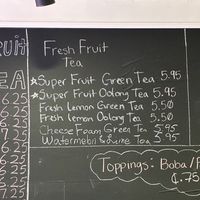 Fresh Fruit
Tea
★Super Fruit Green Tea 5.95
★Super Fruit Oolong Tea 5.95
Fresh Lemon Green Tea 5.50
Fresh Lemon Oolong Tea 5.50
Cheese Foam Green Tea 5.95
Watermelon Tea 5.95
Toppings: Boba/
EA
6.25
6.25
6.25
6.25
7.25